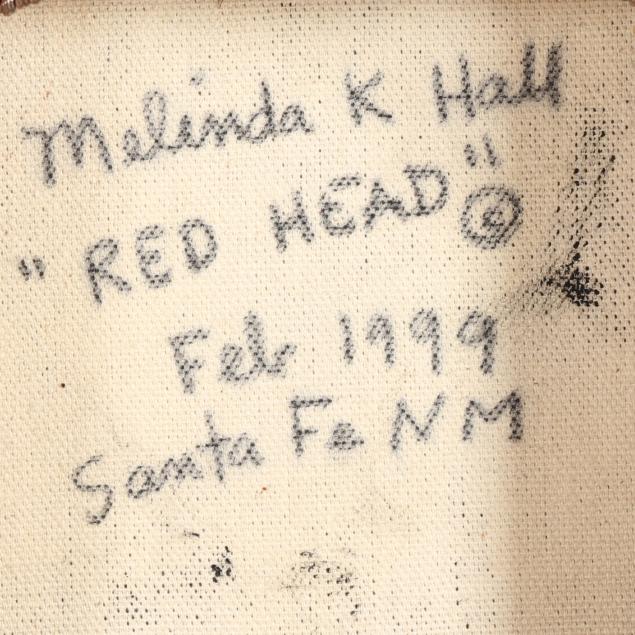 Melinda K Hall
"RED HEAD" ©
Feb 1999
Santa Fe NM